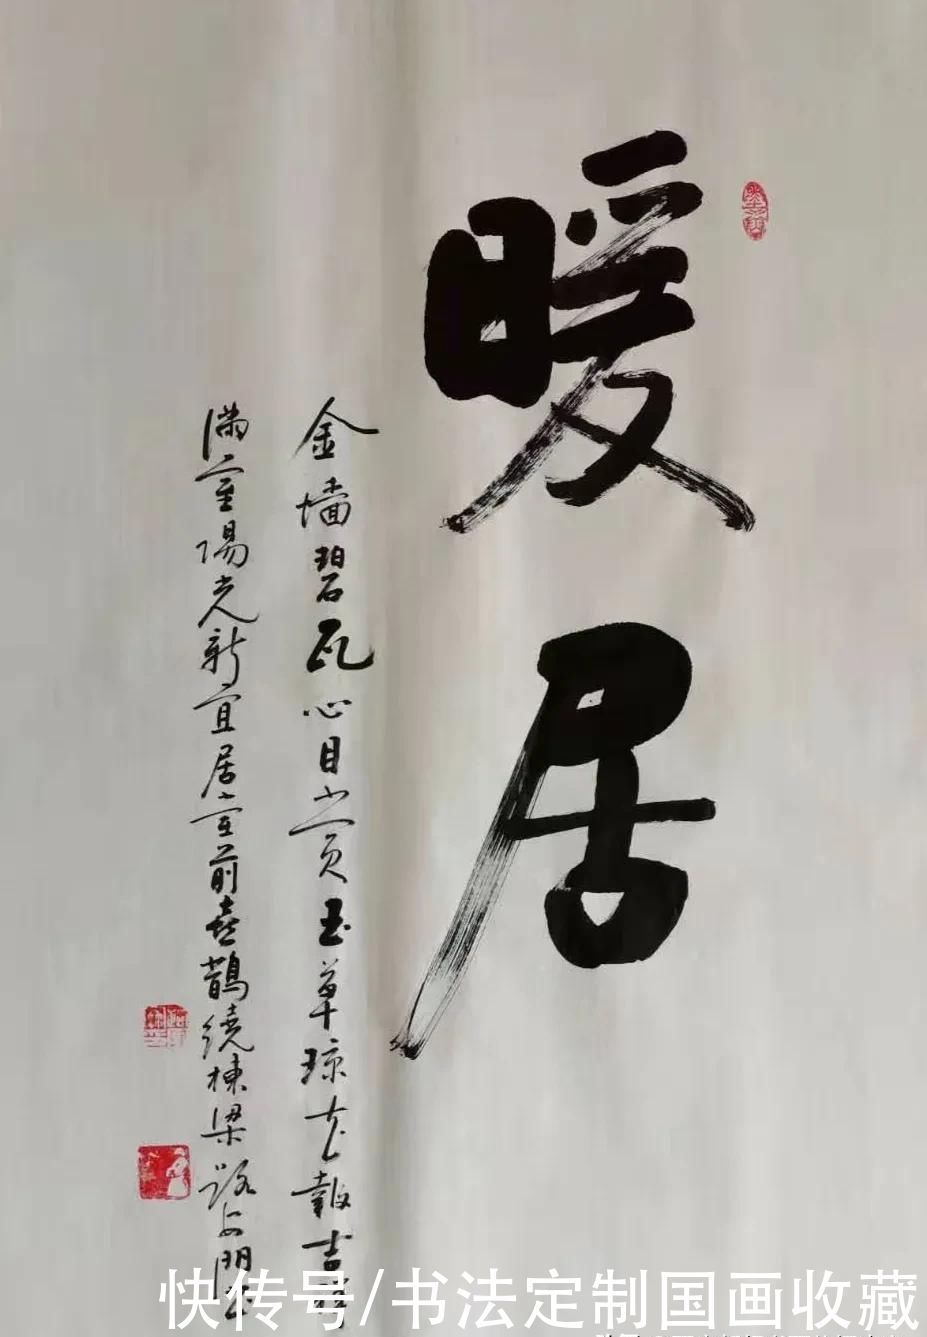 暖居
金墙碧瓦心目赏玉草琼花报吉祥
满室阳光新宜居堂前喜鹊绕栋梁
快传号/书法定制国画收藏